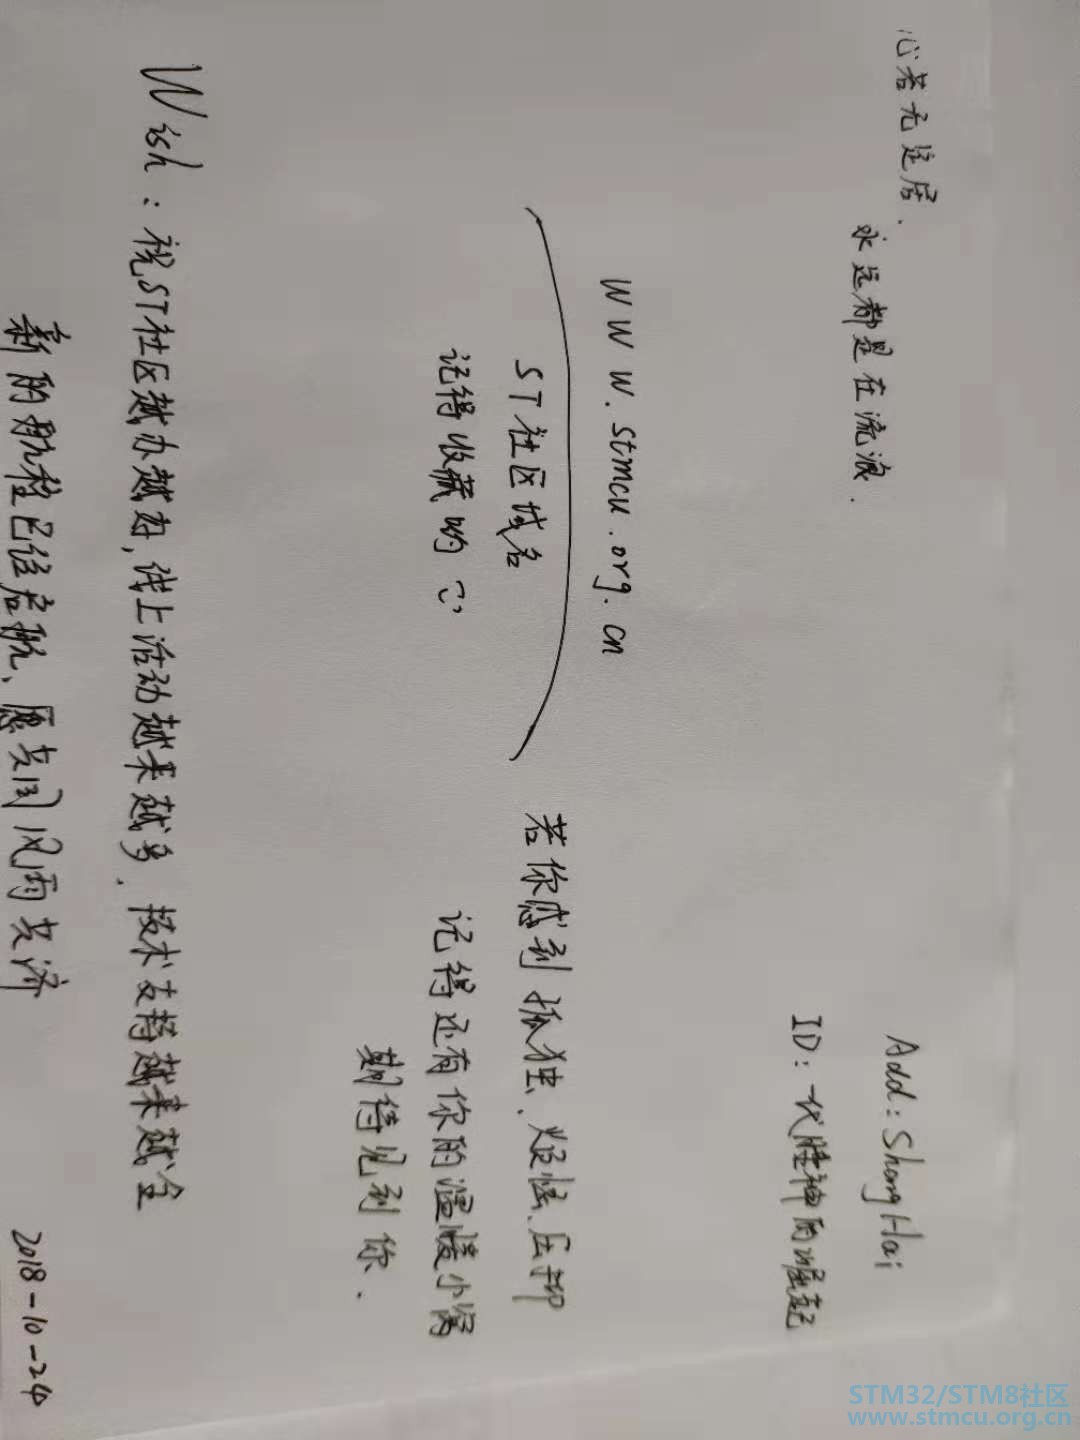 心若无定居.
永远都是在流浪.
Add: ShangHai
ID: 一代胜神的崛起
www.stmcu.org.cn
ST社区域名
记得收藏哟
若你感到孤独、烦恼、压抑
记得还有你的温暖小窝
期待见到你.
Wish: 祝ST社区越办越好,线上活动越来越多.技术支持越来越全
新的航程已经启航、愿共同风雨共济
2018-10-24
STM32/STM8社区
www.stmcu.org.cn